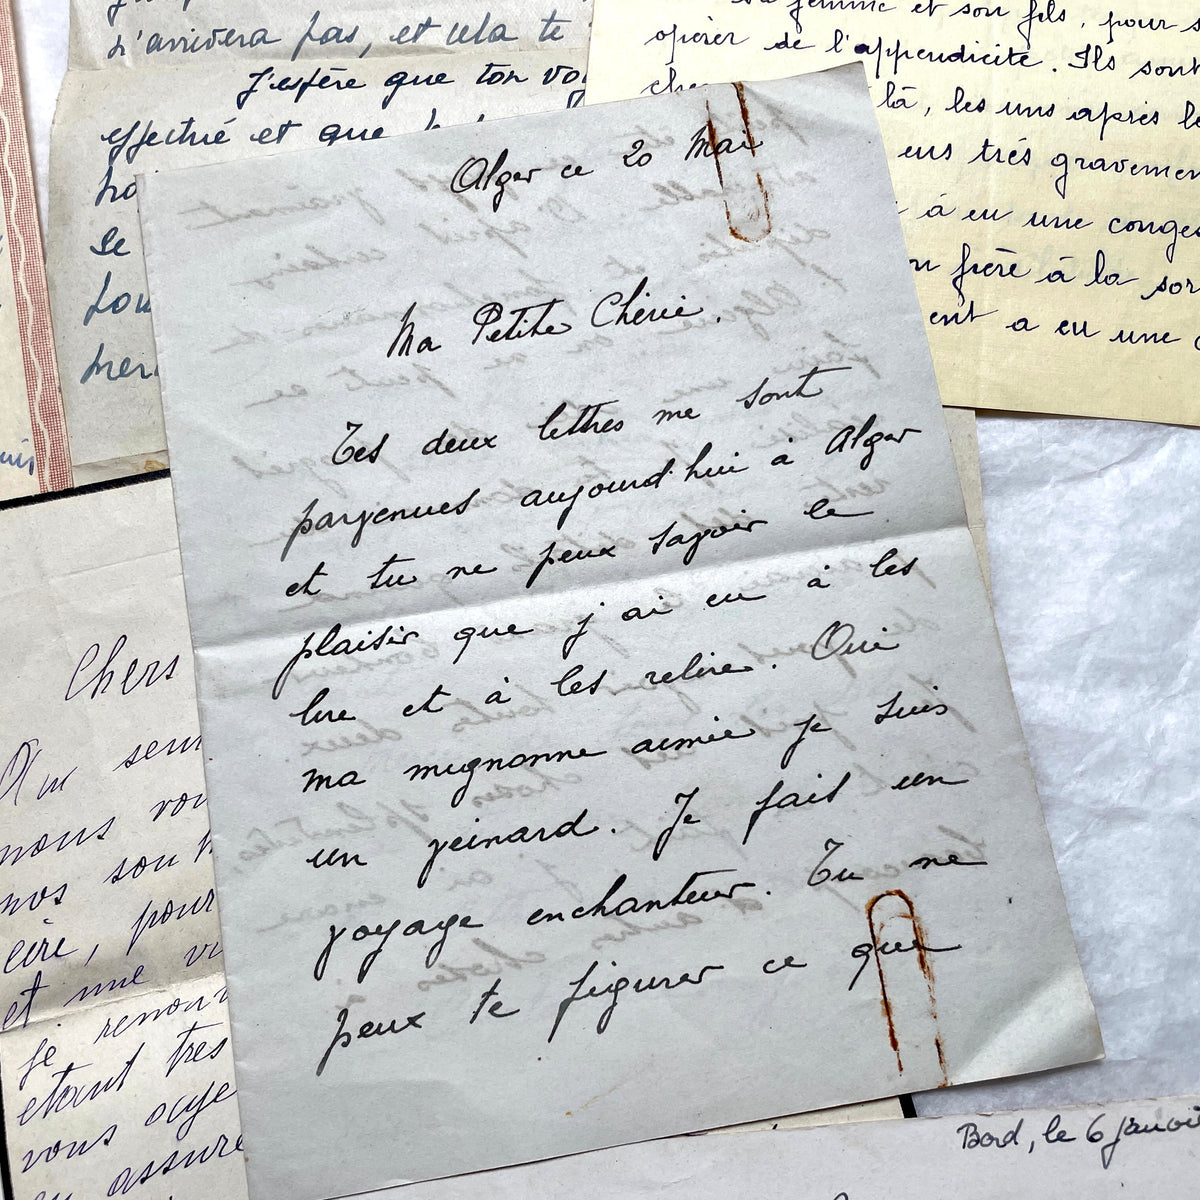 n'arrivera pas, et cela te
J'espère que ton
effectué et que
Se
sa femme et son fils, pour
opérer de l'appendicite. Ils sont
là, les uns après
eus très gravement
à eu une
frère à la
a eu une
Alger ce 20 Mai
Ma Petite Chérie.
Tes deux lettres me sont
parvenues aujourd'hui à Alger
et tu ne peux savoir le
plaisir que j'ai eu à les
lire et à les relire. Oui
ma mignonne aimée je suis
un veinard. Je fais un
voyage enchanteur. Tu ne
peux te figurer ce que
Chers
nous
nos
pour
et une
je
étant très
vous
Bord, le 6 janvi